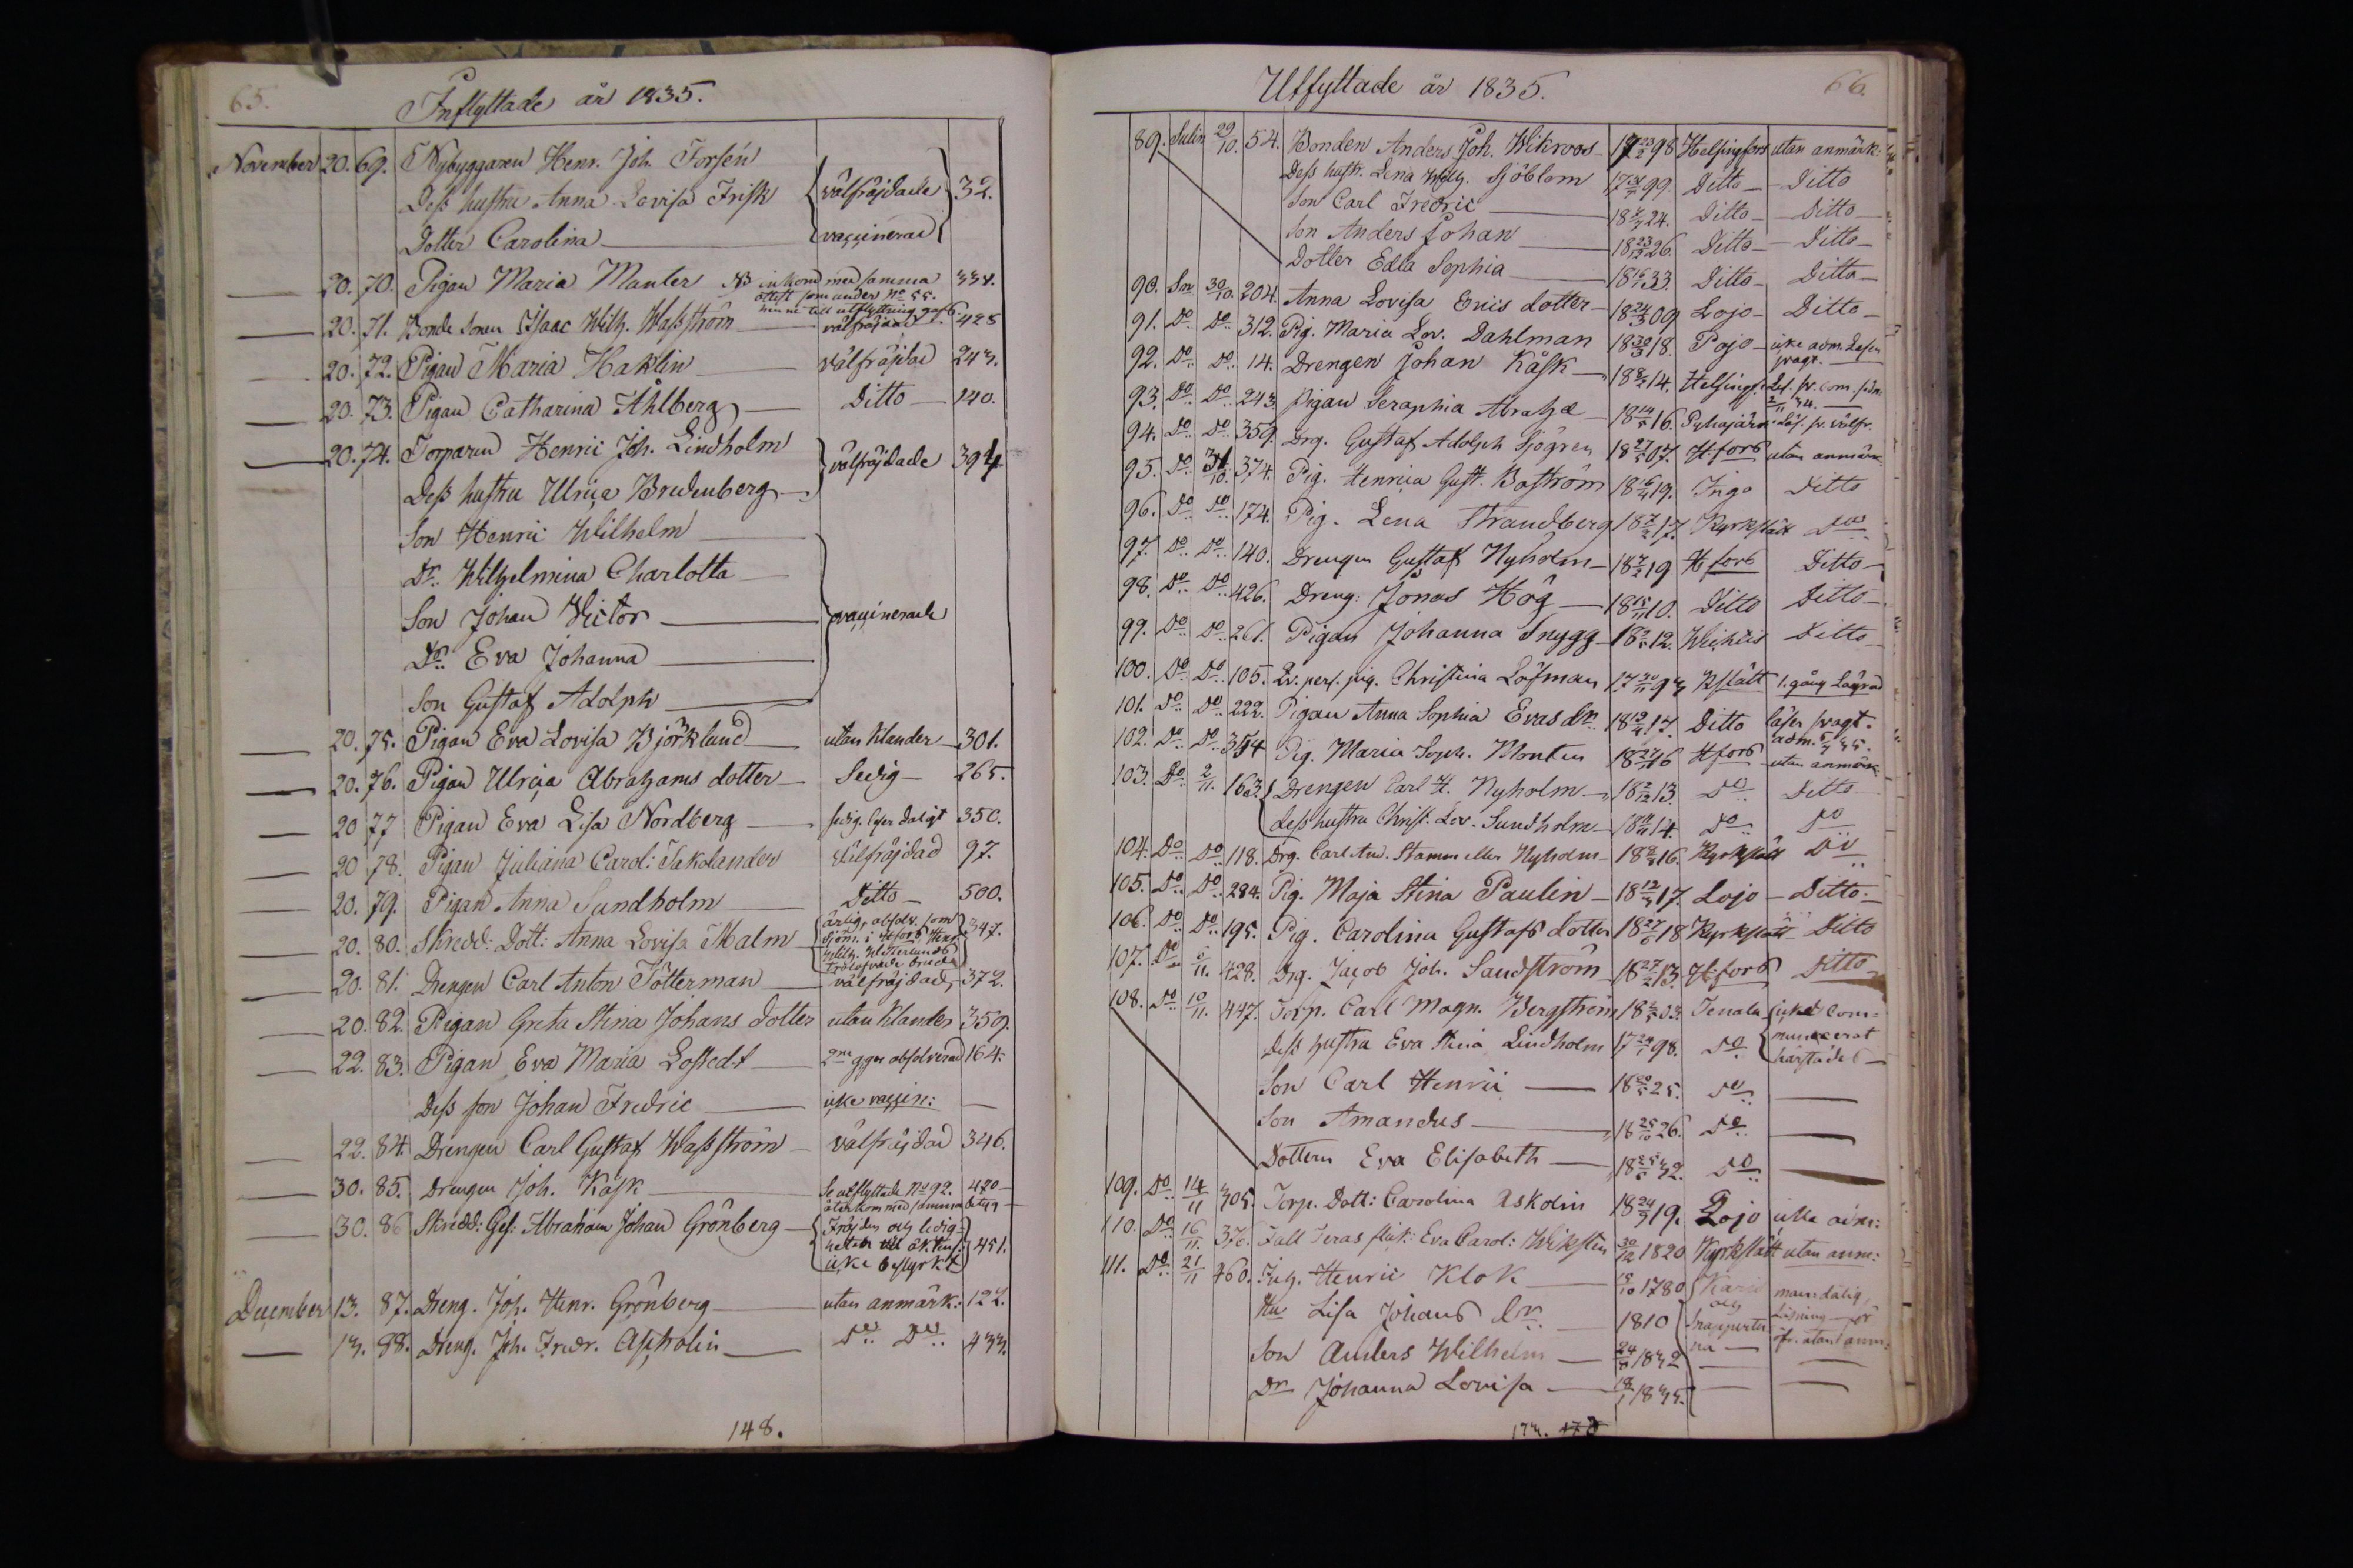 65.
Inflyttade år 1835.
November 20. 69. Nybyggaren Henr. Joh. Forsén
Dess hustru Anna Lovisa Frisk välfräjdade 32.
Dotter Carolina vaccinerad
20. 70. Pigan Maria Manter NB inkom med samma 334.
attest som under No 55.
20. 71. Bonde sonen Isaac Wilh. Wasström välfräjdad 425
20. 72. Pigan Maria Haklin välfräjdad 243.
20. 73. Pigan Catharina Åhlberg Ditto 140.
20. 74. Torparen Henric Joh. Lindholm välfräjdade 394
Dess hustru Ulrica Bredenberg
Son Henric Wilhelm
Dr. Wilhelmina Charlotta
Son Johan Victor vaccinerade
Dr. Eva Johanna
Son Gustaf Adolph
20. 75. Pigan Eva Lovisa Björklund utan klander 301.
20. 76. Pigan Ulrica Abrahams dotter Sedig 265.
20 77 Pigan Eva Lisa Nordberg sedig. läser daligt 350.
20 78. Pigan Juliana Carol: Takolander välfräjdad 97.
20. 79. Pigan Anna Sundholm Ditto 500.
20. 80. Skredd: Dott: Anna Lovisa Malm ärlig, absolv. som 347.
sjöm. i Hfors Henr.
Wilh. Westerlunds
trolofvade brud
20. 81. Drengen Carl Anton Tötterman välfräjdad 372.
20. 82. Pigan Greta Stina Johans dotter utan klander 359.
22. 83. Pigan Eva Maria Lofstedt 2ne ggr absolverad 164.
Dess son Johan Fredric icke vaccin:
22. 84. Drengen Carl Gustaf Wasström välfräjdad 346.
30. 85. Drengen Joh. Kask Se utflyttade No 92. 420
återkom med samma betyg
30. 86 Skredd: Ges: Abraham Johan Grönberg Fräjden och ledig: 451.
heten till äkten:
icke bestyrkt
December 13. 87. Dreng. Joh. Henr. Grönberg utan anmärk: 122.
13. 88. Dreng. Joh. Fredr. Aspholin Do Do 433.
148.
Utflyttade år 1835.
66.
89. 29/10. 54. Bonden Anders Joh. Wikroos 17 23/2 98 Helsingfors utan anmärk:
Dess hustr. Lena Wilh. Sjöblom 99. Ditto Ditto
Son Carl Fredric 24. Ditto Ditto
Son Anders Johan 26. Ditto Ditto
Dotter Edla Sophia 33. Ditto Ditto
90. Sn 30/10. 204. Anna Lovisa Erics dotter 18 24/3 09 Lojo Ditto
91. Do Do 312. Pig. Maria Lov. Dahlman 18 30/3 18. Pojo icke adm. Läser
svagt.
92. Do Do 14. Drengen Johan Kåsk 14. Helsingf.
93. Do Do 243. Pigan Seraphia Abrah.d. 18 14/5 16. Pyhäjärvi
94. Do Do 359. Drg. Gustaf Adolph Sjögren 18 27/5 07. Hfors utan anmärk.
95. Do 31/10. 374. Pig. Henrica Gust. Boström 19. Ingo Ditto
96. Do Do 174. Pig. Lena Strandberg 17. Kyrkslätt Do
97. Do Do 140. Drengen Gustaf Nyholm 19 Hfors Ditto
98. Do Do 426. Dreng: Jonas Hög 10. Ditto Ditto
99. Do Do 261. Pigan Johanna Snygg 12. Wichtis Ditto
100. Do Do 105. Qv. pers. pig. Christina Löfman Kslätt 1. gång lägrad
101. Do Do 222. Pigan Anna Sophia Evas dr. 17. Ditto läser svagt.
102. Do Do 354 Pig. Maria Soph. Monten 16 Hfors utan anmärk:
103. Do 2/11. 163. Drengen Carl H. Nyholm 18 2/12 13. Do Ditto
dess hustru Christ. Lov. Sundholm 14. Do Do
104. Do Do 118. Drg. Carl And. Stamm eller Nyholm 16. Kyrkslätt Do
105. Do Do 284. Pig. Maja Stina Paulin 17. Lojo Ditto
106. Do Do 195. Pig. Carolina Gustafs dotter 18 27/6 18 Kyrkslätt Ditto
107. Do 6/11. 428. Drg. Jacob Joh. Sandström 18 27/2 13. Hfors Ditto
108. Do 10/11. 447. Torp. Carl Magn. Bergström 03. Tenala icke com=
municerat
Dess hustru Eva Stina Lindholm 17 24/1 98. Do härstädes
Son Carl Henric 25. Do
Son Amandus 18 25/10 26. Do
Dottern Eva Elisabeth 32. Do
109. Do 14/11 305. Torp. Dott: Carolina Askolin 18 24/9 19. Lojo icke adm:
110. Do 16/11. 376. Eva Carol: Wiksten 30/12 1820 Kyrkslätt utan anm:
111. Do 21/11 460. Inh. Henric Klok 1780 Karis
och
Hu Lisa Johans dr. 1810 Snappertu
na
Son Anders Wilhelm 1832
Dr Johanna Lovisa 1835.
173.